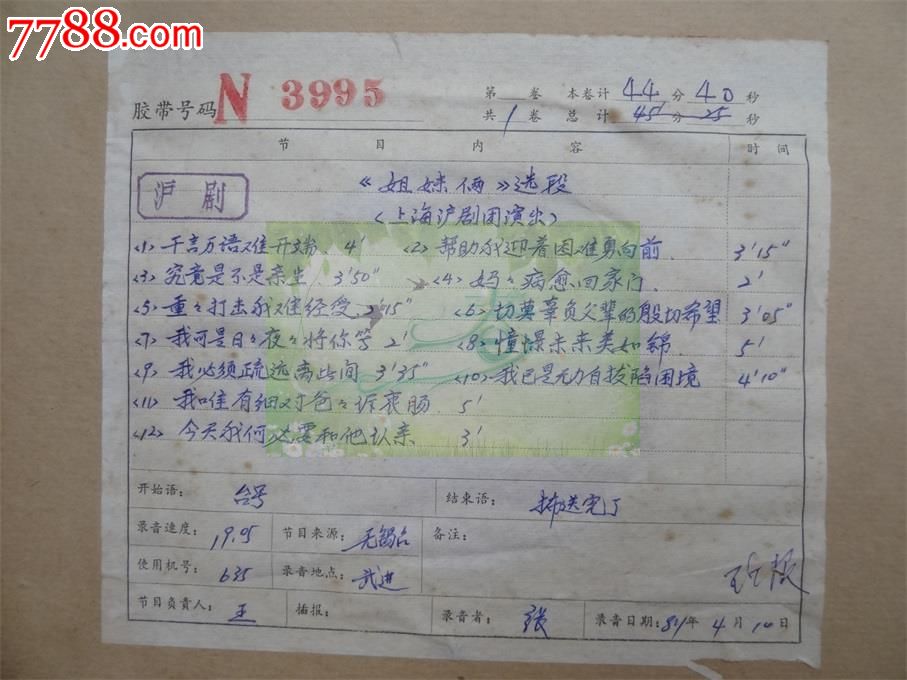 7788.com
胶带号码 N 3995
第 卷 本卷计 44分40秒
共1卷 总计 45分25秒
节目内容 时间
沪剧
《姐妹俩》选段
(上海沪剧团演出)
<1> 千言万语难开端、4' <2> 帮助我迎着困难勇向前. 3'15"
<3> 究竟是不是亲生 3'50" <4> 妈々病愈回家门. 2'
<5> 重々打击我难经受、2'15" <6> 切莫辜负父辈的殷切希望 3'05"
<7> 我可是日々夜々将你等 2' <8> 憧憬未来美如锦. 5'
<9> 我必须疏远离此间 3'35" <10> 我已是无力自拔陷困境 4'10"
<11> 我唯有细对爸々诉衷肠. 5'
<12> 今天我何必要和他认亲 3'
开始语: 台号 结束语: 播送完了
录音速度: 19.05 节目来源: 无锡台 备注:
使用机号: 635 录音地点: 武进
节目负责人: 王 插报: 录音者: 张 录音日期: 84年4月10日